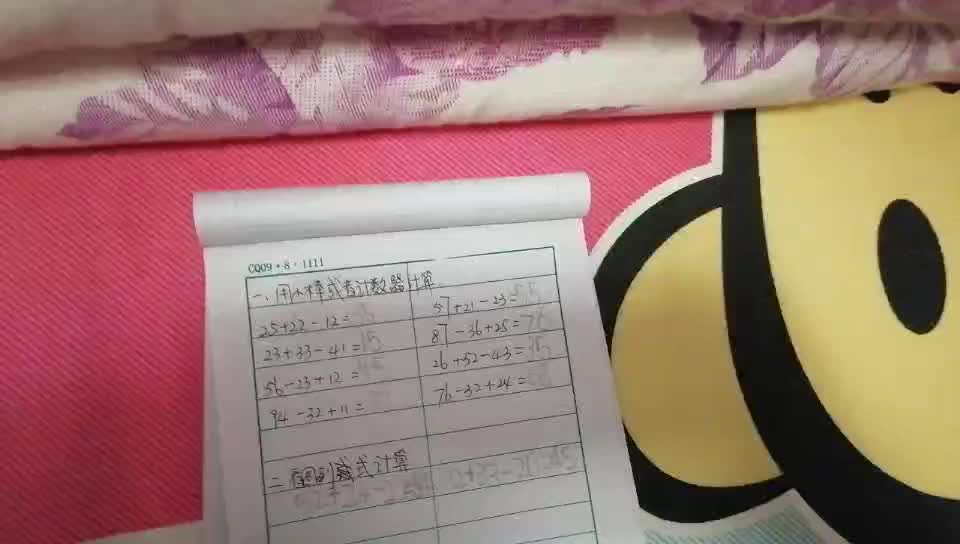 CQ09·8·1111
一、用小棒或者计数器计算
25+23-12=
57+21-23=55
23+33-41=15
87-36+25=76
56-23+12=45
26+52-43=35
94-32+11=
76-32+24=
二、看图列式计算